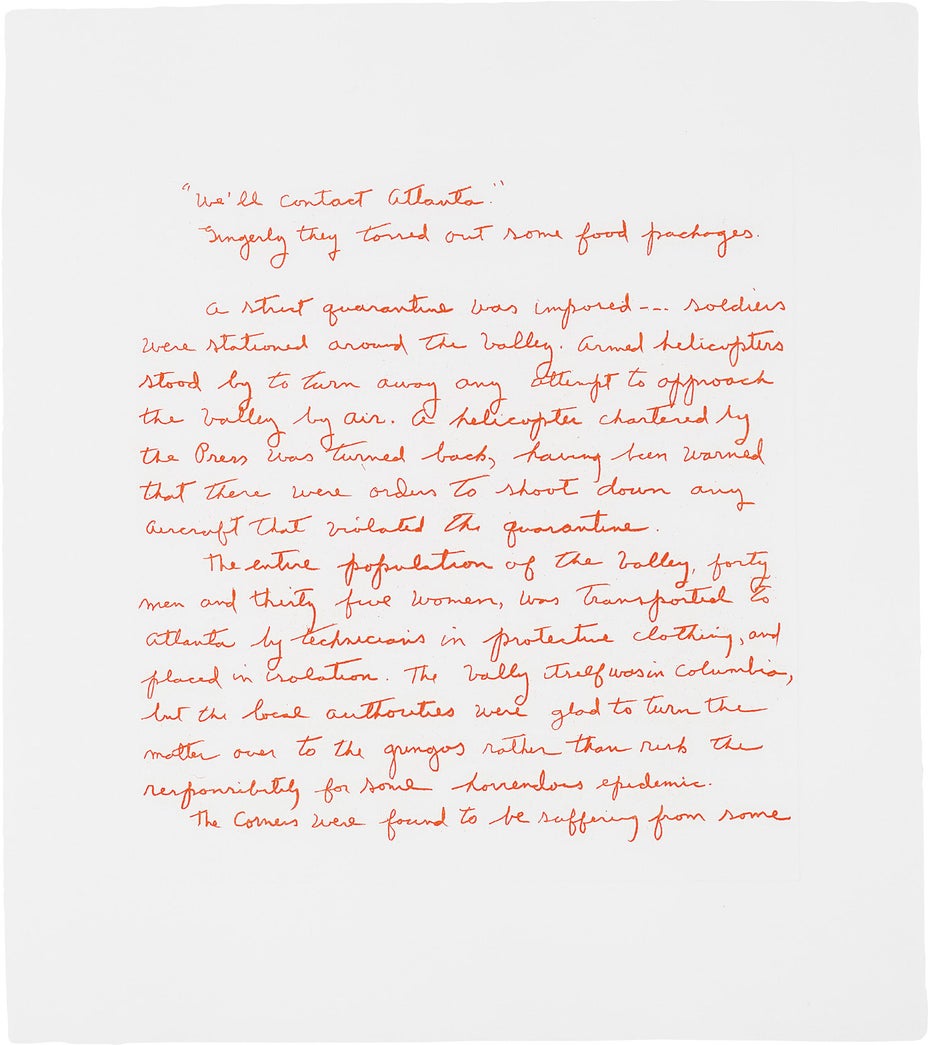 "We'll contact Atlanta."
Gingerly they tossed out some food packages.
A strict quarantine was imposed--- soldiers
were stationed around the Valley. Armed helicopters
stood by to turn away any attempt to approach
the Valley by air. A helicopter chartered by
the Press was turned back, having been warned
that there were orders to shoot down any
aircraft that violated the quarantine.
The entire population of the Valley, forty
men and thirty five women, was transported to
Atlanta by technicians in protective clothing, and
placed in isolation. The Vally itself was in Columbia,
but the local authorities were glad to turn the
matter over to the gringos rather than risk the
responsibility for some horrendous epidemic.
The Corners were found to be suffering from some